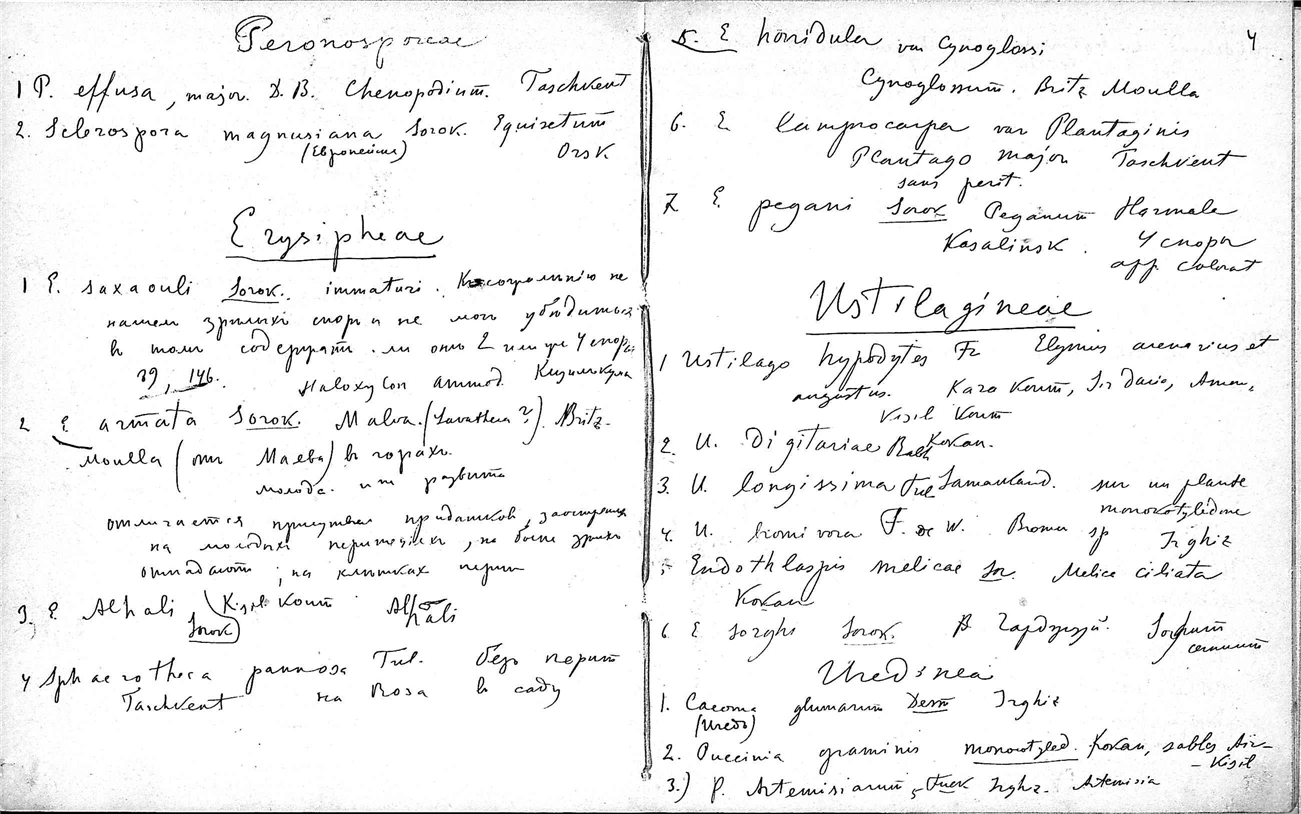 Peronosporeae
1 P. effusa, major. D. B. Chenopodium. Taschkent
2. Sclerospora magnusiana Sorok. Equisetum
(Европейск) Orsk.
Erysipheae
1 E. saxaouli Sorok. immaturi. К сожалѣнію не
нашелъ зрѣлыхъ споръ и не могъ убѣдиться
въ томъ содержатъ ли онѣ 2 или же 4 споры
39, 146. Haloxylon ammod. Кизилъ Кумъ
2 E armata Sorok. Malva. (Lavathera?). Britz-
Moulla (отъ Маева) въ горахъ.
молода. развита
отличается придатковъ,
на молодыхъ перитеціяхъ, но болѣе зрѣлыхъ
отпадаютъ; на
3. E. Alhali, Kisil Koum Alhali
Sorok
4 Sphaerotheca pannosa Tul. безъ перит
Taschkent на Rosa въ саду
4
5. E horridula var Cynoglossi
Cynoglossum. Britz Moulla
6. E lamprocarpa var Plantaginis
Plantago major Taschkent
sans perit.
7. E. pegani Sorok Peganum Harmala
Kasalinsk. 4 споры
app. colorat
Ustilagineae
1 Ustilago hypodytes Fr Elymus arenarius et
angustus. Kara Koum, Sir Daria, Amou,
Kisil Koum
2. U. Digitariae Kokan.
3. U. longissima Tul Samarkand. sur un plante
monokotyledone
4. U. bromivora F. de W. Bromus sp Irghiz
5 Endothlaspis melicae Sor. Melica ciliata
Kokan
6. E sorghi Sorok. Sorghum
cernuum
Uredinea
1. Caeoma glumarum Desm Irghiz
(Uredo)
2. Puccinia graminis monocotyled. Kokan, sables Aïr-
-Kisil
3.) P. Artemisiarum, Fuck Irghz. Artemisia